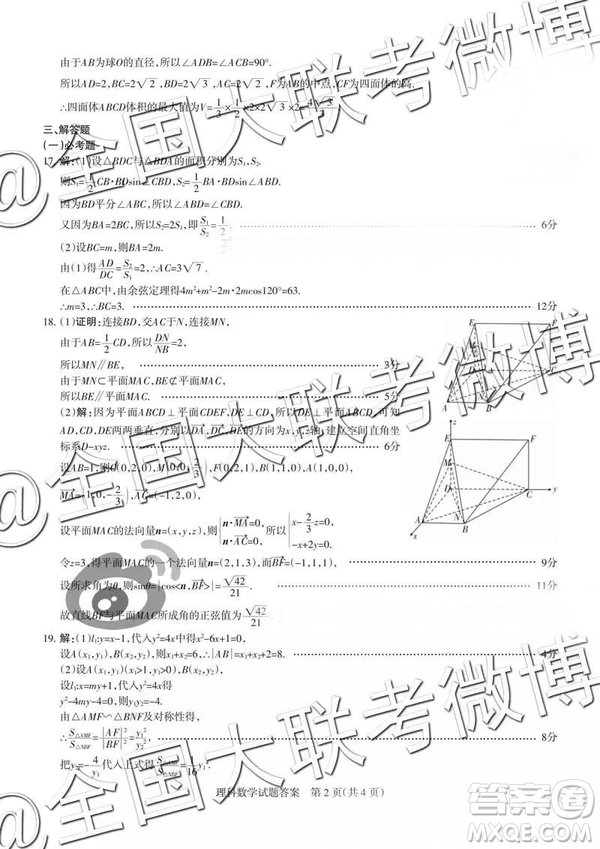 由于AB为球O的直径,所以∠ADB=∠ACB=90°.
所以AD=2,BC=2√2,BD=2√3,AC=2√2,F为AB的中点,CF为四面体的高.
∴四面体ABCD体积的最大值为V=1/3×1/2×2×2√3×2=4√3/3
三、解答题
(一)必考题
17. 解:(1)设△BDC与△BDA的面积分别为S₁,S₂.
则S₁=1/2 CB·BDsin∠CBD,S₂=1/2 BA·BDsin∠ABD.
因为BD平分∠ABC,所以∠ABD=∠CBD.
又因为BA=2BC,所以S₂=2S₁,即S₁/S₂=1/2. 6分
(2)设BC=m,则BA=2m.
由(1)得AD/DC=S₂/S₁=2,∴AC=3√7.
在△ABC中,由余弦定理得4m²+m²-2m·2mcos120°=63.
∴m=3,∴BC=3. 12分
18. (1)证明:连接BD,交AC于N,连接MN,
由于AB=1/2 CD,所以DN/NB=2,
所以MN∥BE, 3分
由于MN⊂平面MAC,BE⊄平面MAC,
所以BE∥平面MAC. 4分
(2)解:因为平面ABCD⊥平面CDEF,DE⊥CD,所以DE⊥平面ABCD,可知
AD,CD,DE两两垂直,分别以DA,DC,DE的方向为x,y,z轴,建立空间直角坐
标系D-xyz. 6分
设AB=1,则C(0,2,0),M(0,0,2/3),F(0,2,1),B(1,1,0),A(1,0,0),
MA=(1,0,-2/3),
设平面MAC的法向量n=(x,y,z),则 n·MA=0, n·AC=0,所以 x-2/3 z=0, -x+2y=0.
令z=3,得平面MAC的一个法向量n=(2,1,3),而BF=(-1,1,1), 9分
设所求角为θ,则sinθ=|cos<n,BF>|=√42/21 11分
故直线BF与平面MAC所成角的正弦值为√42/21
19. 解:(1)l₁:y=x-1,代入y²=4x中得x²-6x+1=0
设A(x₁,y₁),B(x₂,y₂),则x₁+x₂=6,∴|AB|=x₁+x₂+2=8. 4分
(2)设A(x₁,y₁)(x₁>1,y₁>0),B(x₂,y₂)
设l₁:x=my+1,代入y²=4x得
y²-4my-4=0,所以y₁y₂=-4.
由△AMF∽△BNF及对称性得,
8分
把y₂=-4/y₁代入得
理科数学试题答案 第2页(共4页)
E
F
M
D
C
N
A
B
z
E
F
M
D
C
y
N
A
B
x
@全国大联考微博
@全国大联考微博
@全国大联考微博
答案圈
MXQE.COM